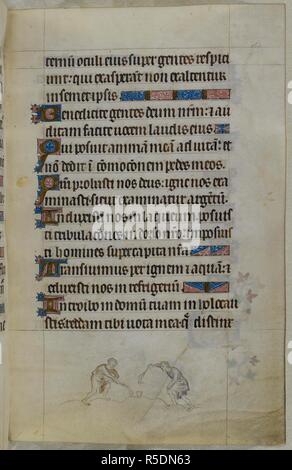 ternū oculi eius super gentes respici
unt: qui exasperāt non exaltentur
in semetipsis
Benedicite gentes deum nr̄m: ⁊ au
ditam facite uocem laudis eius
Qui posuit animā meā ad uitam: et
nō dedit ī cōmocōem pedes meos.
Qm̄ probasti nos deus: igne nos exa
minasti sicut examinatur argētū.
Induxisti nos in laqueū imposuis
ti tribulacōes in dorso nr̄o: imposuis
ti homines super capita nr̄a
Transiuimus per ignem ⁊ aquā: ⁊
eduxisti nos in refrigeriū
Introibo in domū tuam in holocau
stis: reddam tibi uota mea q̄ distinx
R5DN63